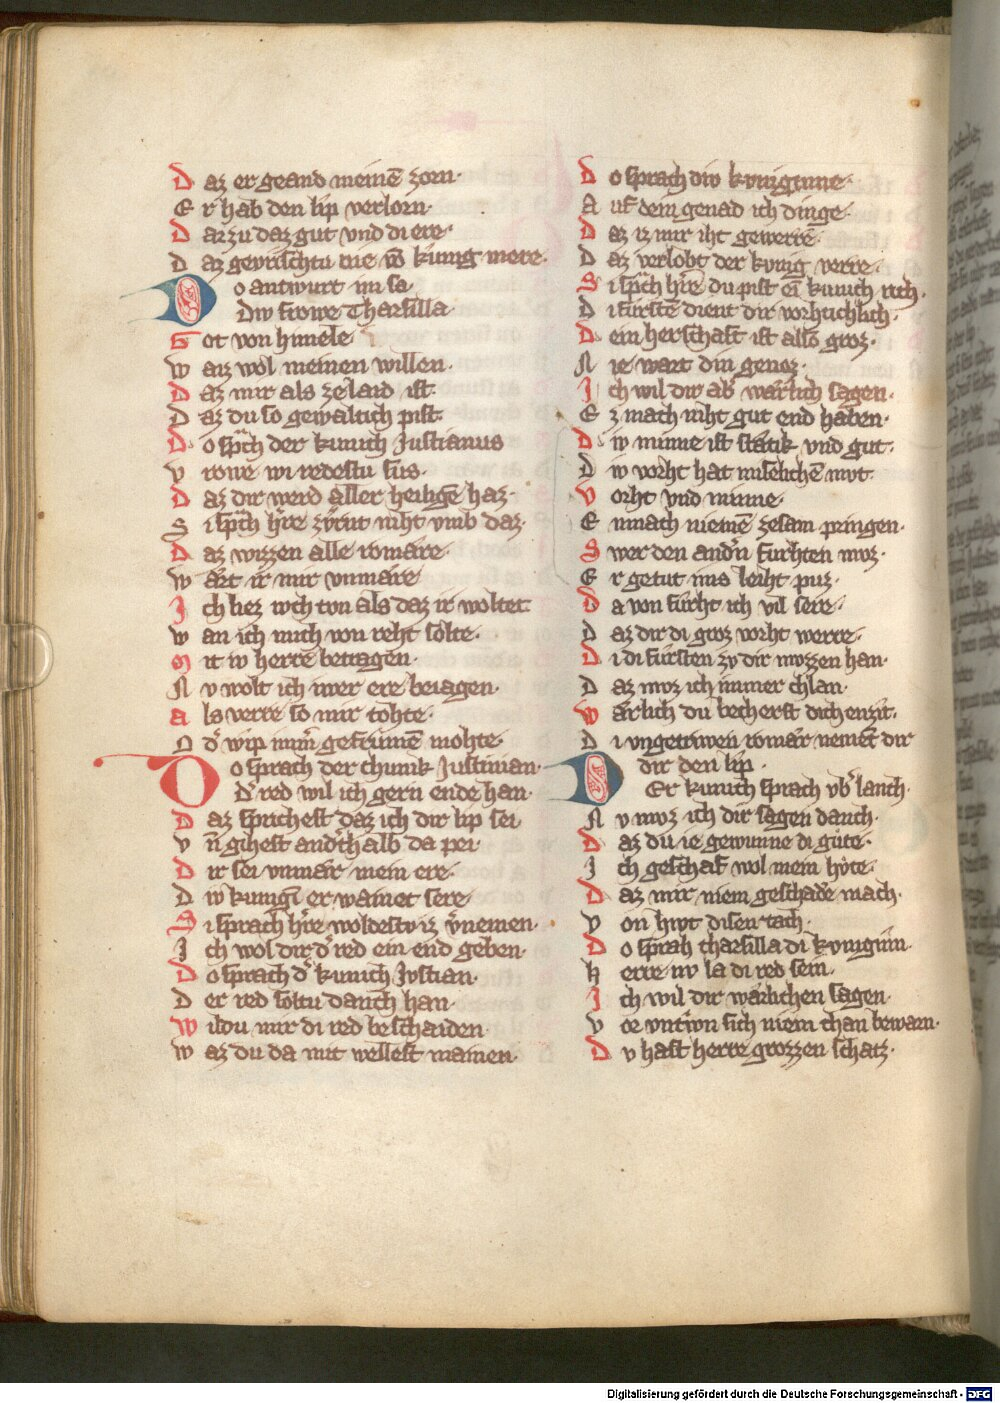 Daz er geand meinē zorn·
Er hab den lip verlorn·
Dar zu daz gut vnd di ere·
Daz gevrischtu nie vō kunig mere·
Do antwurt im sa·
Diw frowe Tharsilla
Got von himele
Waiz wol meinen willen·
Daz mir als ze laid ist·
Daz du so gewaltich pist·
Do sprach der kunich Justianus
Vrowe wi redestu sus·
Daz dir werd aller heiligē haz·
Si sprach h're zvrnt niht vmb daz·
Daz wizzen alle romare·
Wart ir mir vnmare
Ich liez iwch tvn als daz ir woltet·
Wan ich mich von reht solte·
Mit iw herrē betragen·
Nv wolt ich iwer ere beiagen·
Als verre so mir tohte·
O d' wip imm' gefrumē mohte·
Do sprach der chunik Justinian·
D' red wil ich gern ende han·
Daz sprichest daz ich dir lip sei
Vn̄ gihest and'thalb da pei
Dir sei vnmar mein ere·
Diw kungī er wainet sere
Si sprach h're woldestv iz v'nemen·
Ich wol dir d' red ein end geben·
Do sprach d' kunich Jvstian
Der red soltu danch han
Wildu mir di red beschaiden
Waz du da mit wellest mainen·
Do sprach diw kvniginne·
Auf dein genad ich dinge·
Daz iz mir iht gewerrē·
Daz verlobt der kvnig verre·
Si spch h're du pist ein kunich rich·
Di furstē dient dir vorhtichlich·
Dein herschaft ist also groz·
Nie wart din genoz·
Ich wil dir ab' warlich sagen·
Ez mach niht gut end haben·
Diw minne ist statik vnd gut·
Diw vorht hat mislichē mvt·
Vorht vnd minne·
Enmach niemē zesam pringen·
Swer den and'n furhten mvz·
Er getut ims leiht puz·
Da von furht ich vil sere·
Daz dir di groz vorht werre·
Di di fursten zv dir mvzzen han·
Daz mvz ich immer chlan·
Warlich du becherst dich enzit·
Di vngetriwen romar nement dir
dir den lip·
Der kunich sprach vb' lanch·
Nv mvz ich dir sagen danch·
Daz du ie gewunne di gute·
Ich geschaf wol mein hvte·
Daz mir niem geschade mach·
Von hivt disen tach·
Do sprah tharsilla di kvnigiñ·
Herre nv la di red sein·
Ich wil dir warlichen sagen
Vor vntriwn sich niem chan bewarn·
Dv hast herre grozzen schatz·
Digitalisierung gefördert durch die Deutsche Forschungsgemeinschaft - DFG